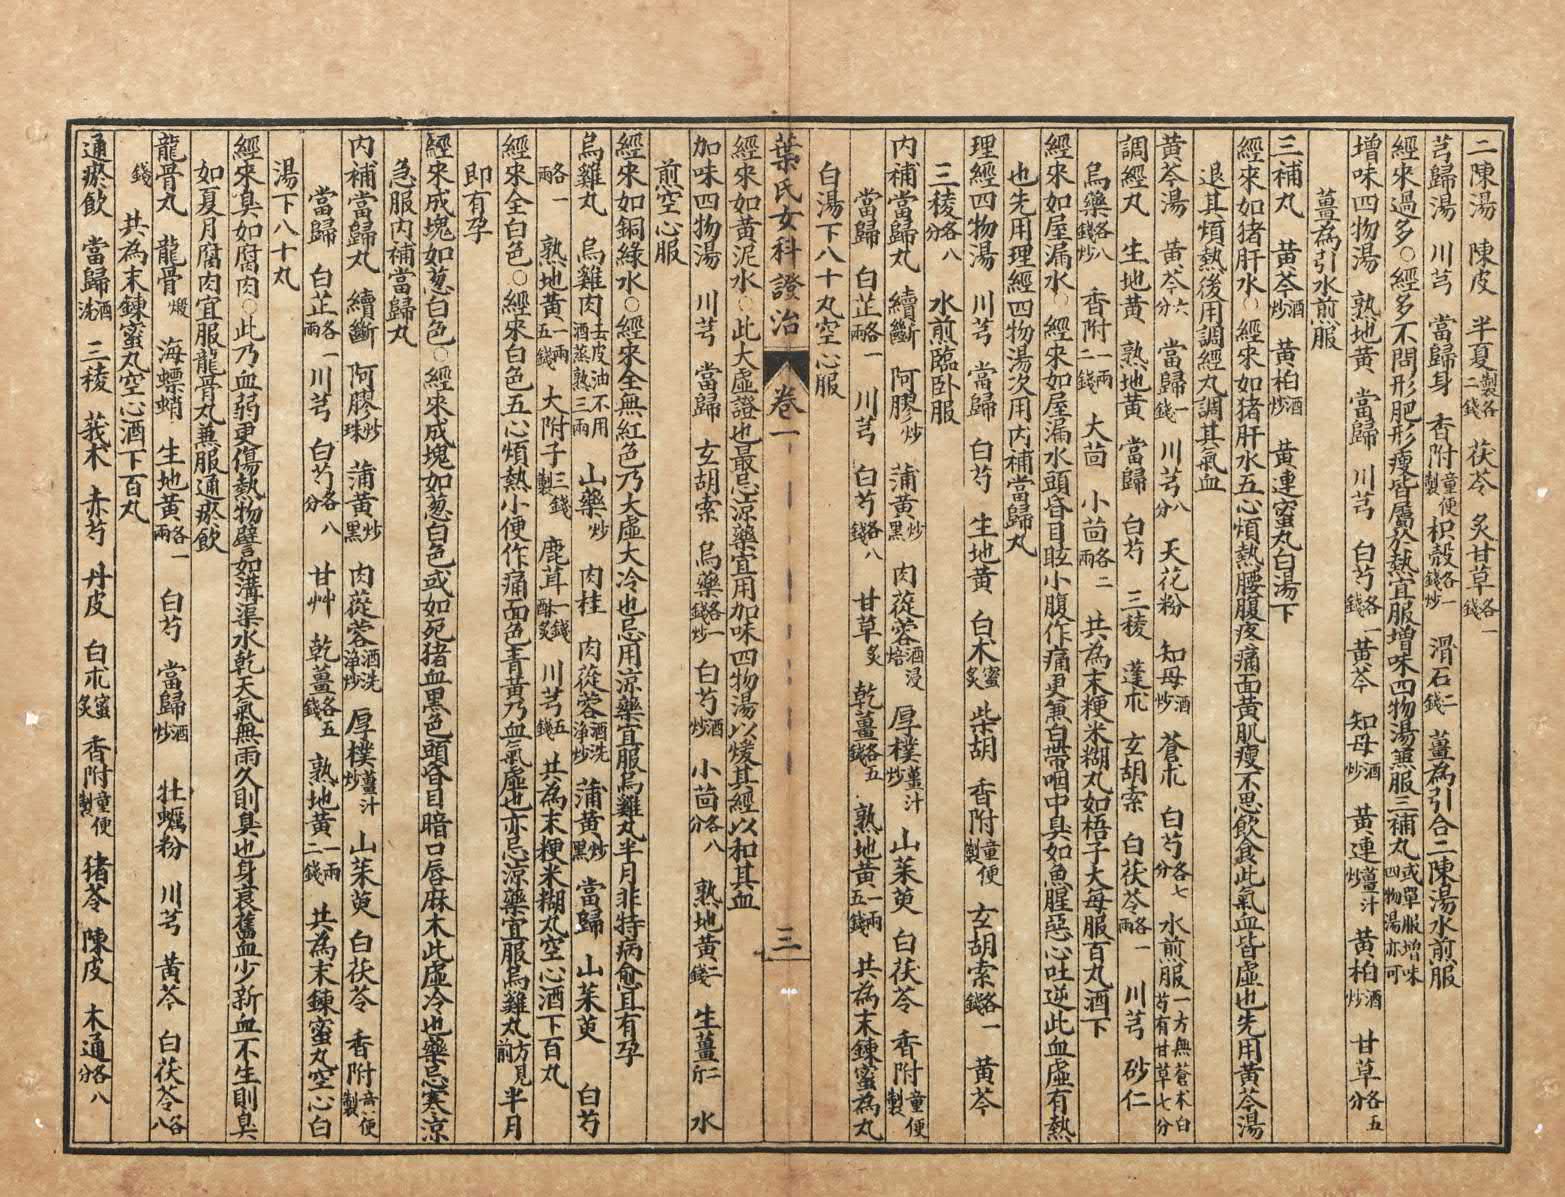 二陳湯　陳皮　半夏製各二錢　茯苓　炙甘草各一錢
芎歸湯　川芎　當歸身　香附童便製　枳殼各一錢炒　滑石二錢　薑為引合二陳湯水煎服
經來過多○經多不問形肥形瘦皆屬於熱宜服增味四物湯兼服三補丸或單服增味四物湯亦可
增味四物湯　熟地黃　當歸　川芎　白芍各一錢　黃芩　知母酒炒　黃連薑汁炒　黃柏酒炒　甘草各五分
薑為引水煎服
三補丸　黃芩酒炒　黃柏酒炒　黃連蜜丸白湯下
經來如猪肝水○經來如猪肝水五心煩熱腰腹疼痛面黃肌瘦不思飲食此氣血皆虛也先用黃芩湯
退其煩熱後用調經丸調其氣血
黃芩湯　黃芩六分　當歸一錢　川芎八分　天花粉　知母酒炒　蒼朮　白芍各七分　水煎服一方無蒼木白芍有甘草七分
調經丸　生地黃　熟地黃　當歸　白芍　三稜　蓬朮　玄胡索　白茯苓各一兩　川芎　砂仁
烏藥各八錢炒　香附一兩二錢　大茴　小茴各二兩　共為末粳米糊丸如梧子大每服百丸酒下
經來如屋漏水○經來如屋漏水頭昏目眩小腹作痛更兼白帶咽中臭如魚腥惡心吐逆此血虛有熱
也先用理經四物湯次用內補當歸丸
理經四物湯　川芎　當歸　白芍　生地黃　白木蜜炙　柴胡　香附童便製　玄胡索各一錢　黃芩
三稜各八分　水煎臨卧服
內補當歸丸　續斷　阿膠炒　蒲黃炒黑　肉蓯蓉酒浸焙　厚樸薑汁炒　山茱萸　白茯苓　香附童便製
當歸　白芷各一兩　川芎　白芍各八錢　甘草炙　乾薑各五錢　熟地黃一兩五錢　共為末鍊蜜為丸
白湯下八十丸空心服
葉氏女科證治　卷一　三
經來如黃泥水○此大虛證也最忌涼藥宜用加味四物湯以煖其經以和其血
加味四物湯　川芎　當歸　玄胡索　烏藥各一錢炒　白芍酒炒　小茴各八分　熟地黃二錢　生薑二斤　水
煎空心服
經來如銅綠水○經來全無紅色乃大虛大冷也忌用涼藥宜服烏雞丸半月非特病愈宜有孕
烏雞丸　烏雞肉去皮油不用酒蒸熟三兩　山藥炒　肉桂　肉蓯蓉酒洗淨炒　蒲黃炒黑　當歸　山茱萸　白芍
各一兩　熟地黃一兩五錢　大附子三錢製　鹿茸一錢酥炙　川芎五錢　共為末粳米糊丸空心酒下百丸
經來全白色○經來白色五心煩熱小便作痛面色青黃乃血氣虛也亦忌涼藥宜服烏雞丸方見前半月
即有孕
經來成塊如葱白色○經來成塊如葱白色或如死猪血黑色頭昏目暗口唇麻木此虛冷也藥忌寒涼
急服內補當歸丸
內補當歸丸　續斷　阿膠炒珠　蒲黃炒黑　肉蓯蓉酒洗淨炒　厚樸薑汁炒　山茱萸　白茯苓　香附童便製
當歸　白芷各一兩　川芎　白芍各八分　甘艸　乾薑各五錢　熟地黃一兩二錢　共為末鍊蜜丸空心白
湯下八十丸
經來臭如腐肉○此乃血弱更傷熱物譬如溝渠水乾天氣無雨久則臭也身衰舊血少新血不生則臭
如夏月腐肉宜服龍骨丸兼服通瘀飲
龍骨丸　龍骨煅　海螵蛸　生地黃各一兩　白芍　當歸酒炒　牡蠣粉　川芎　黃芩　白茯苓各八
錢　共為末鍊蜜丸空心酒下百丸
通瘀飲　當歸酒洗　三稜　莪术　赤芍　丹皮　白朮蜜炙　香附童便製　猪苓　陳皮　木通各八分